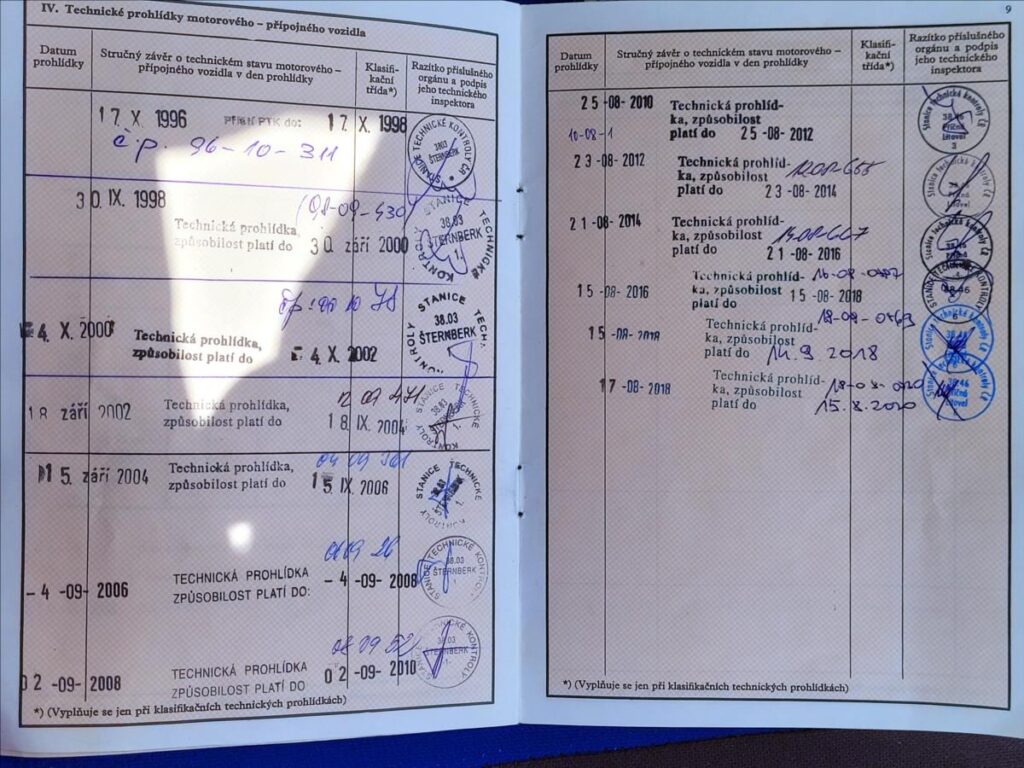 IV. Technické prohlídky motorového – přípojného vozidla
Datum prohlídky
Stručný závěr o technickém stavu motorového – přípojného vozidla v den prohlídky
Klasifi-
kační
třída*)
Razítko příslušného
orgánu a podpis
jeho technického
inspektora
17. X. 1996 Příští PTK do: 17. X. 1998
č.p. 96-10-311
STANICE TECHNICKÉ KONTROLY ČR
3803
ŠTERNBERK
30. IX. 1998
98-09-430
Technická prohlídka,
způsobilost platí do 30. září 2000
STANICE TECHNICKÉ KONTROLY
38.03
ŠTERNBERK
1.
4. X. 2000
Technická prohlídka,
způsobilost platí do 4. X. 2002
STANICE TECHNICKÉ KONTROLY
38.03
ŠTERNBERK
18. září 2002
Technická prohlídka,
způsobilost platí do 18. IX. 2004
STANICE TECHNICKÉ KONTROLY
15. září 2004
Technická prohlídka,
způsobilost platí do 15. IX. 2006
STANICE TECHNICKÉ KONTROLY
- 4 -09- 2006
TECHNICKÁ PROHLÍDKA
ZPŮSOBILOST PLATÍ DO: - 4 -09- 2008
STANICE TECHNICKÉ KONTROLY
38.03
ŠTERNBERK
02 -09- 2008
TECHNICKÁ PROHLÍDKA
ZPŮSOBILOST PLATÍ DO 02 -09- 2010
STANICE TECHNICKÉ KONTROLY
38.03
ŠTERNBERK
1.
*) (Vyplňuje se jen při klasifikačních technických prohlídkách)
9
Datum
prohlídky
Stručný závěr o technickém stavu motorového –
přípojného vozidla v den prohlídky
Klasifi-
kační
třída*)
Razítko příslušného
orgánu a podpis
jeho technického
inspektora
25 -08- 2010
10-08-1
Technická prohlíd-
ka, způsobilost
platí do 25 -08- 2012
Stanice technické kontroly ČR
38.46
Litovel
3
23 -08- 2012
Technická prohlíd-
ka, způsobilost
platí do 23 -08- 2014
Stanice technické kontroly ČR
Litovel
21 -08- 2014
Technická prohlíd-
ka, způsobilost
platí do 21 -08- 2016
Stanice technické kontroly ČR
15 -08- 2016
Technická prohlíd-
ka, způsobilost
platí do 15 -08- 2018
STANICE TECHNICKÉ KONTROLY
38.46
15 -08- 2018
Technická prohlíd-
ka, způsobilost
platí do 14. 9. 2018
Stanice technické kontroly ČR
17 -08- 2018
Technická prohlíd-
ka, způsobilost
platí do 15. 8. 2020
38.46
Litovel
*) (Vyplňuje se jen při klasifikačních technických prohlídkách)